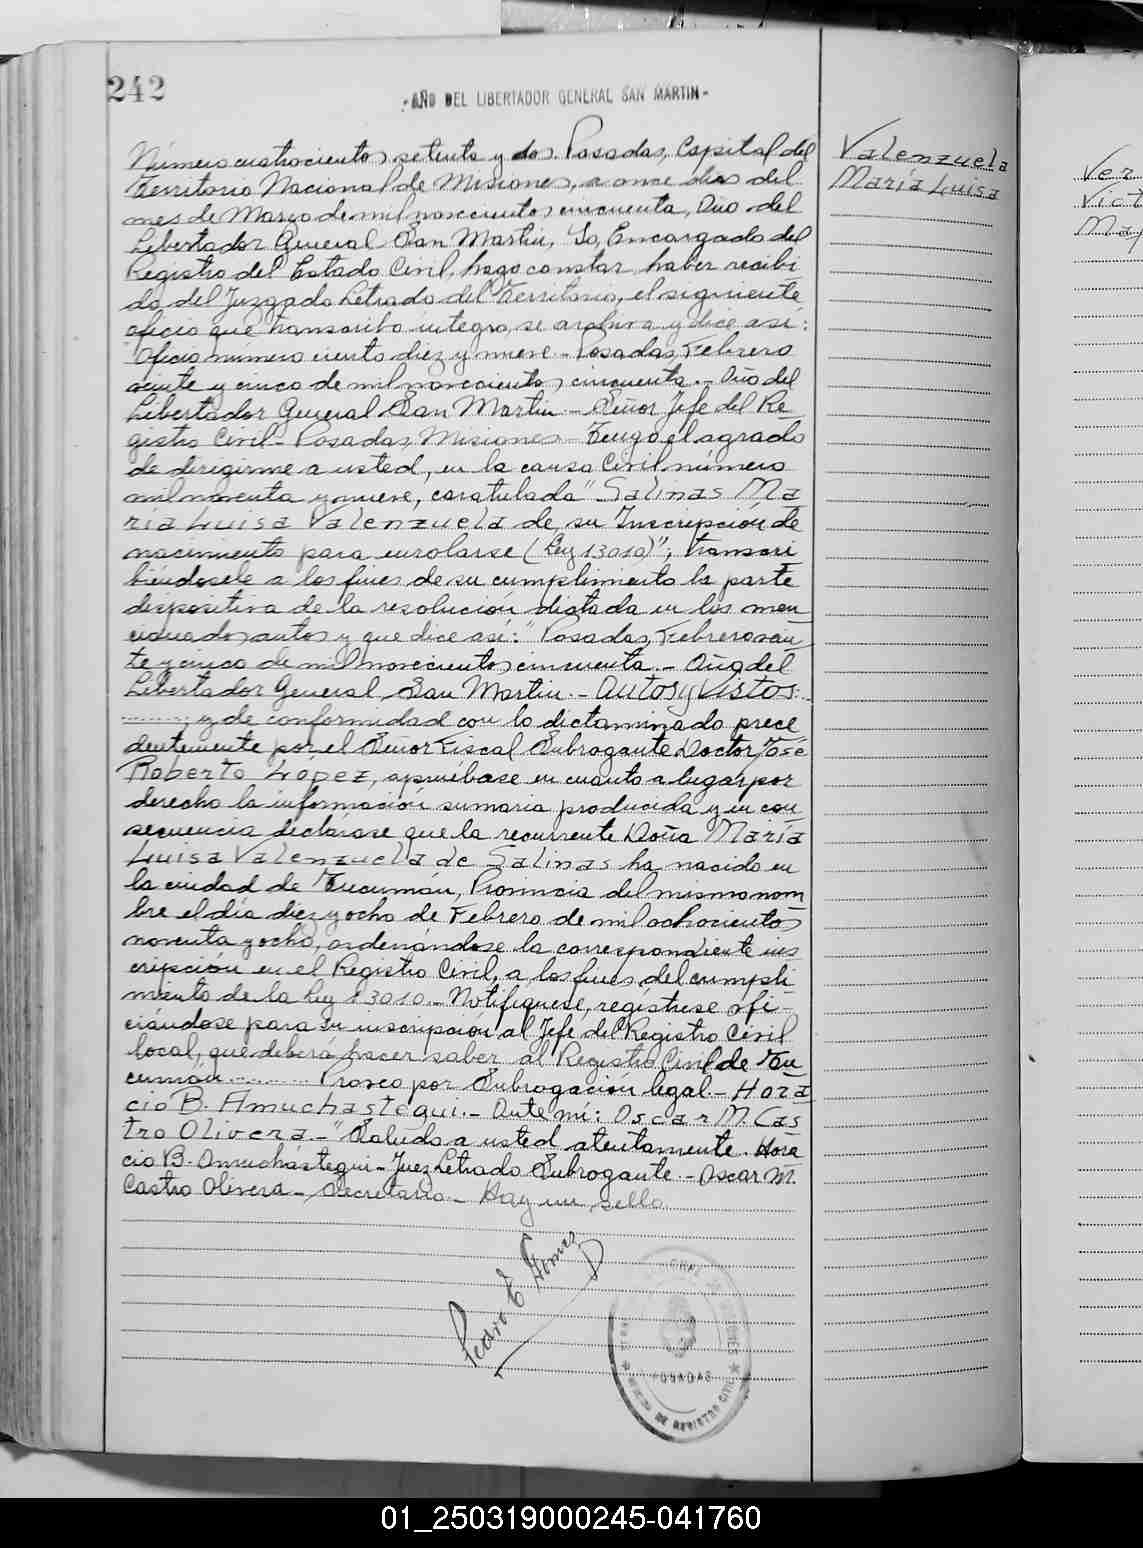 242
-AÑO DEL LIBERTADOR GENERAL SAN MARTIN-
Número cuatrocientos setenta y dos. Posadas, Capital del
Territorio Nacional de Misiones, a once días del
mes de Marzo de mil novecientos cincuenta, Año del
Libertador General San Martin, Yo, Encargado del
Registro del Estado Civil, hago constar haber recibi
do del Juzgado Letrado del Territorio, el siguiente
oficio que transcribo integro, se archiva y dice así:
"Oficio número ciento diez y nueve - Posadas, Febrero
veinte y cinco de mil novecientos cincuenta.- Año del
Libertador General San Martin - Señor Jefe del Re
gistro Civil - Posadas, Misiones - Tengo el agrado
de dirigirme a usted, en la causa Civil número
mil noventa y nueve, caratulada "Salinas Ma
ría Luisa Valenzuela de, su Inscripción de
nacimiento para enrolarse (Ley 13010)", transcri
biéndosele a los fines de su cumplimiento la parte
dispositiva de la resolución dictada en los men
cionados autos y que dice así: "Posadas, Febrero vein
te y cinco de mil novecientos cincuenta.- Año del
Libertador General San Martin.- Autos y Vistos:
......... y de conformidad con lo dictaminado prece
dentemente por el Señor Fiscal Subrogante Doctor José
Roberto López, apruébase en cuanto a lugar por
derecho la información sumaria producida y en con
secuencia declárase que la recurrente Doña María
Luisa Valenzuela de Salinas ha nacido en
la ciudad de Tucumán, Provincia del mismo nom
bre el día diez y ocho de Febrero de mil ochocientos
noventa y ocho, ordenándose la correspondiente ins
cripción en el Registro Civil, a los fines del cumpli
miento de la Ley 13010.- Notifíquese, regístrese ofi-
ciándose para su inscripción al Jefe del Registro Civil
local, que deberá hacer saber al Registro Civil de Tu
cumán ............ Proveo por Subrogación legal.- Hora
cio B. Amuchastegui.- Ante mí: Oscar M. Cas
tro Olivera.-" Saludo a usted atentamente. Hora
cio B. Amuchástegui - Juez Letrado Subrogante.- Oscar M.
Castro Olivera - Secretario - Hay un sello.
Pedro E Gomez
POSADAS
DE REGISTRO CIVIL
Valenzuela
María Luisa
Ver
Vict
Ma
01_250319000245-041760